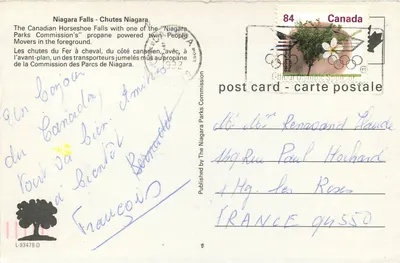 Niagara Falls - Chutes Niagara
The Canadian Horseshoe Falls with one of the Niagara
Parks Commission's" propane powered twin People
Movers in the foreground.
Les chutes du Fer à cheval, du côté canadien, avec, à
l'avant-plan, un des transporteurs jumelés mûs au propane
de la Commission des Parcs de Niagara.
Un bonjour
du Canada
Tout va bien. Amitiés
à bientôt
Bernadette
François
L-93478-D
Published by The Niagara Parks Commission
9
1992
84 Canada
post card - carte postale
Mr Mme Claude
Rue Paul
les Roses
FRANCE